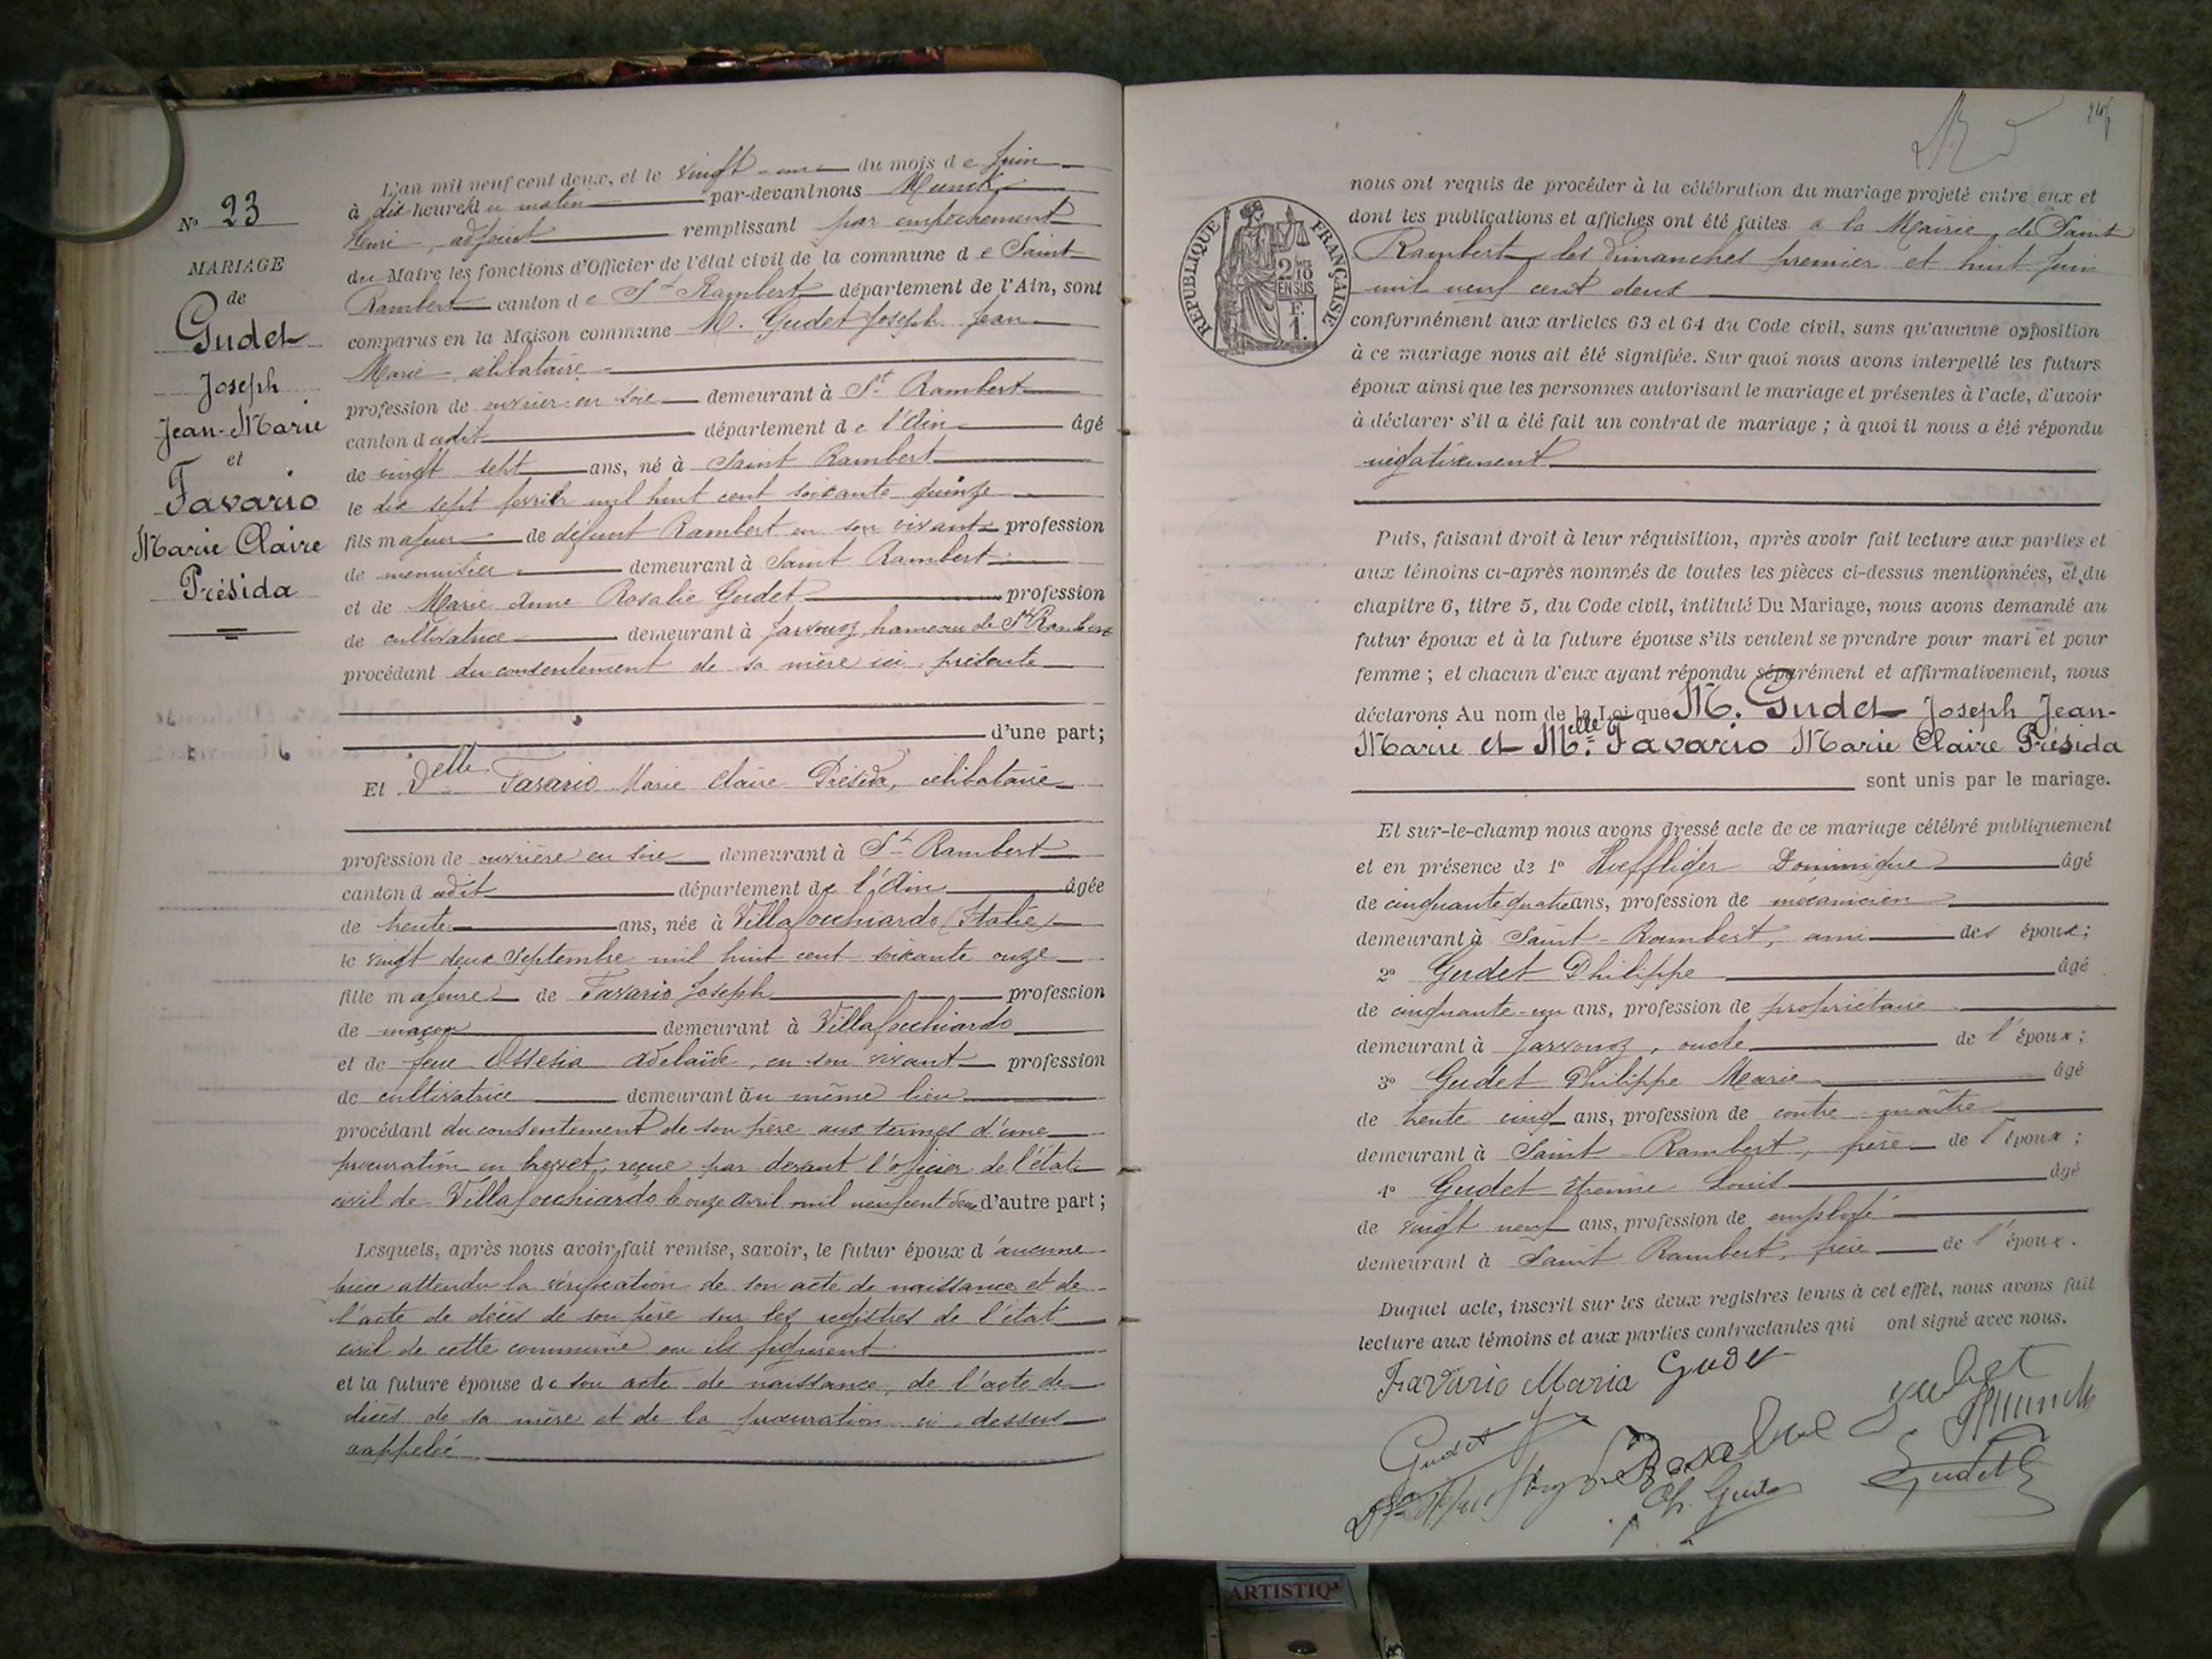 N° 23
MARIAGE
de
Gudet
Joseph
Jean-Marie
et
Favario
Marie Claire
Présida
L'an mil neuf cent deux, et le vingt-un du mois de Juin
à dix heures du matin par-devant nous Munck
Henri, adjoint remplissant par empêchement
du Maire les fonctions d'Officier de l'état civil de la commune de Saint
Rambert canton de St Rambert département de l'Ain, sont
comparus en la Maison commune M. Gudet Joseph Jean
Marie, célibataire
profession de ouvrier en soie demeurant à St. Rambert
canton dudit département de l'Ain âgé
de vingt sept ans, né à Saint Rambert
le dix sept février mil huit cent soixante quinze
fils majeur de défunt Rambert en son vivant profession
de menuisier demeurant à Saint Rambert
et de Marie Anne Rosalie Gudet profession
de cultivatrice demeurant à Javornoz hameau de St Rambert
procédant du consentement de sa mère ici présente
d'une part;
Et Delle Favario Marie Claire Présida, célibataire
profession de ouvrière en soie demeurant à St Rambert
canton dudit département de l'Ain âgée
de trente ans, née à Villafocchiardo (Italie)
le vingt deux Septembre mil huit cent soixante onze
fille majeure de Favario Joseph profession
de maçon demeurant à Villafocchiardo
et de feue Ossesia Adelaïde, en son vivant profession
de cultivatrice demeurant au même lieu
procédant du consentement de son père aux termes d'une
procuration en brevet, reçue par devant l'officier de l'état
civil de Villafocchiardo le onze avril mil neuf cent deux d'autre part;
Lesquels, après nous avoir fait remise, savoir, le futur époux d'aucune
pièce attendu la vérification de son acte de naissance et de
l'acte de décès de son père sur les registres de l'état
civil de cette commune ou ils figurent
et la future épouse de son acte de naissance, de l'acte de
décès de sa mère et de la procuration ci-dessus
rappelée
REPUBLIQUE FRANÇAISE
2/10 EN SUS
F. 1.
nous ont requis de procéder à la célébration du mariage projeté entre eux et
dont les publications et affiches ont été faites à la Mairie de Saint
Rambert les Dimanches premier et huit Juin
mil neuf cent deux
conformément aux articles 63 et 64 du Code civil, sans qu'aucune opposition
à ce mariage nous ait été signifiée. Sur quoi nous avons interpellé les futurs
époux ainsi que les personnes autorisant le mariage et présentes à l'acte, d'avoir
à déclarer s'il a été fait un contrat de mariage; à quoi il nous a été répondu
négativement
Puis, faisant droit à leur réquisition, après avoir fait lecture aux parties et
aux témoins ci-après nommés de toutes les pièces ci-dessus mentionnées, et du
chapitre 6, titre 5, du Code civil, intitulé Du Mariage, nous avons demandé au
futur époux et à la future épouse s'ils veulent se prendre pour mari et pour
femme; et chacun d'eux ayant répondu séparément et affirmativement, nous
déclarons Au nom de la Loi que M. Gudet Joseph Jean-
Marie et Melle Favario Marie Claire Présida
sont unis par le mariage.
Et sur-le-champ nous avons dressé acte de ce mariage célébré publiquement
et en présence de 1° Hueffliger Dominique âgé
de cinquante quatre ans, profession de mécanicien
demeurant à Saint-Rambert, ami des époux;
2° Gudet Philippe âgé
de cinquante-un ans, profession de propriétaire
demeurant à Javornoz, oncle de l'époux;
3° Gudet Philippe Marie âgé
de trente cinq ans, profession de contre-maître
demeurant à Saint-Rambert, frère de l'époux;
4° Gudet Etienne Louis âgé
de vingt neuf ans, profession de employé
demeurant à Saint Rambert, frère de l'époux.
Duquel acte, inscrit sur les deux registres tenus à cet effet, nous avons fait
lecture aux témoins et aux parties contractantes qui ont signé avec nous.
Favario Maria Gudet
Gudet
HMunck
Ph. Gudet
Gudet
ARTISTIQ